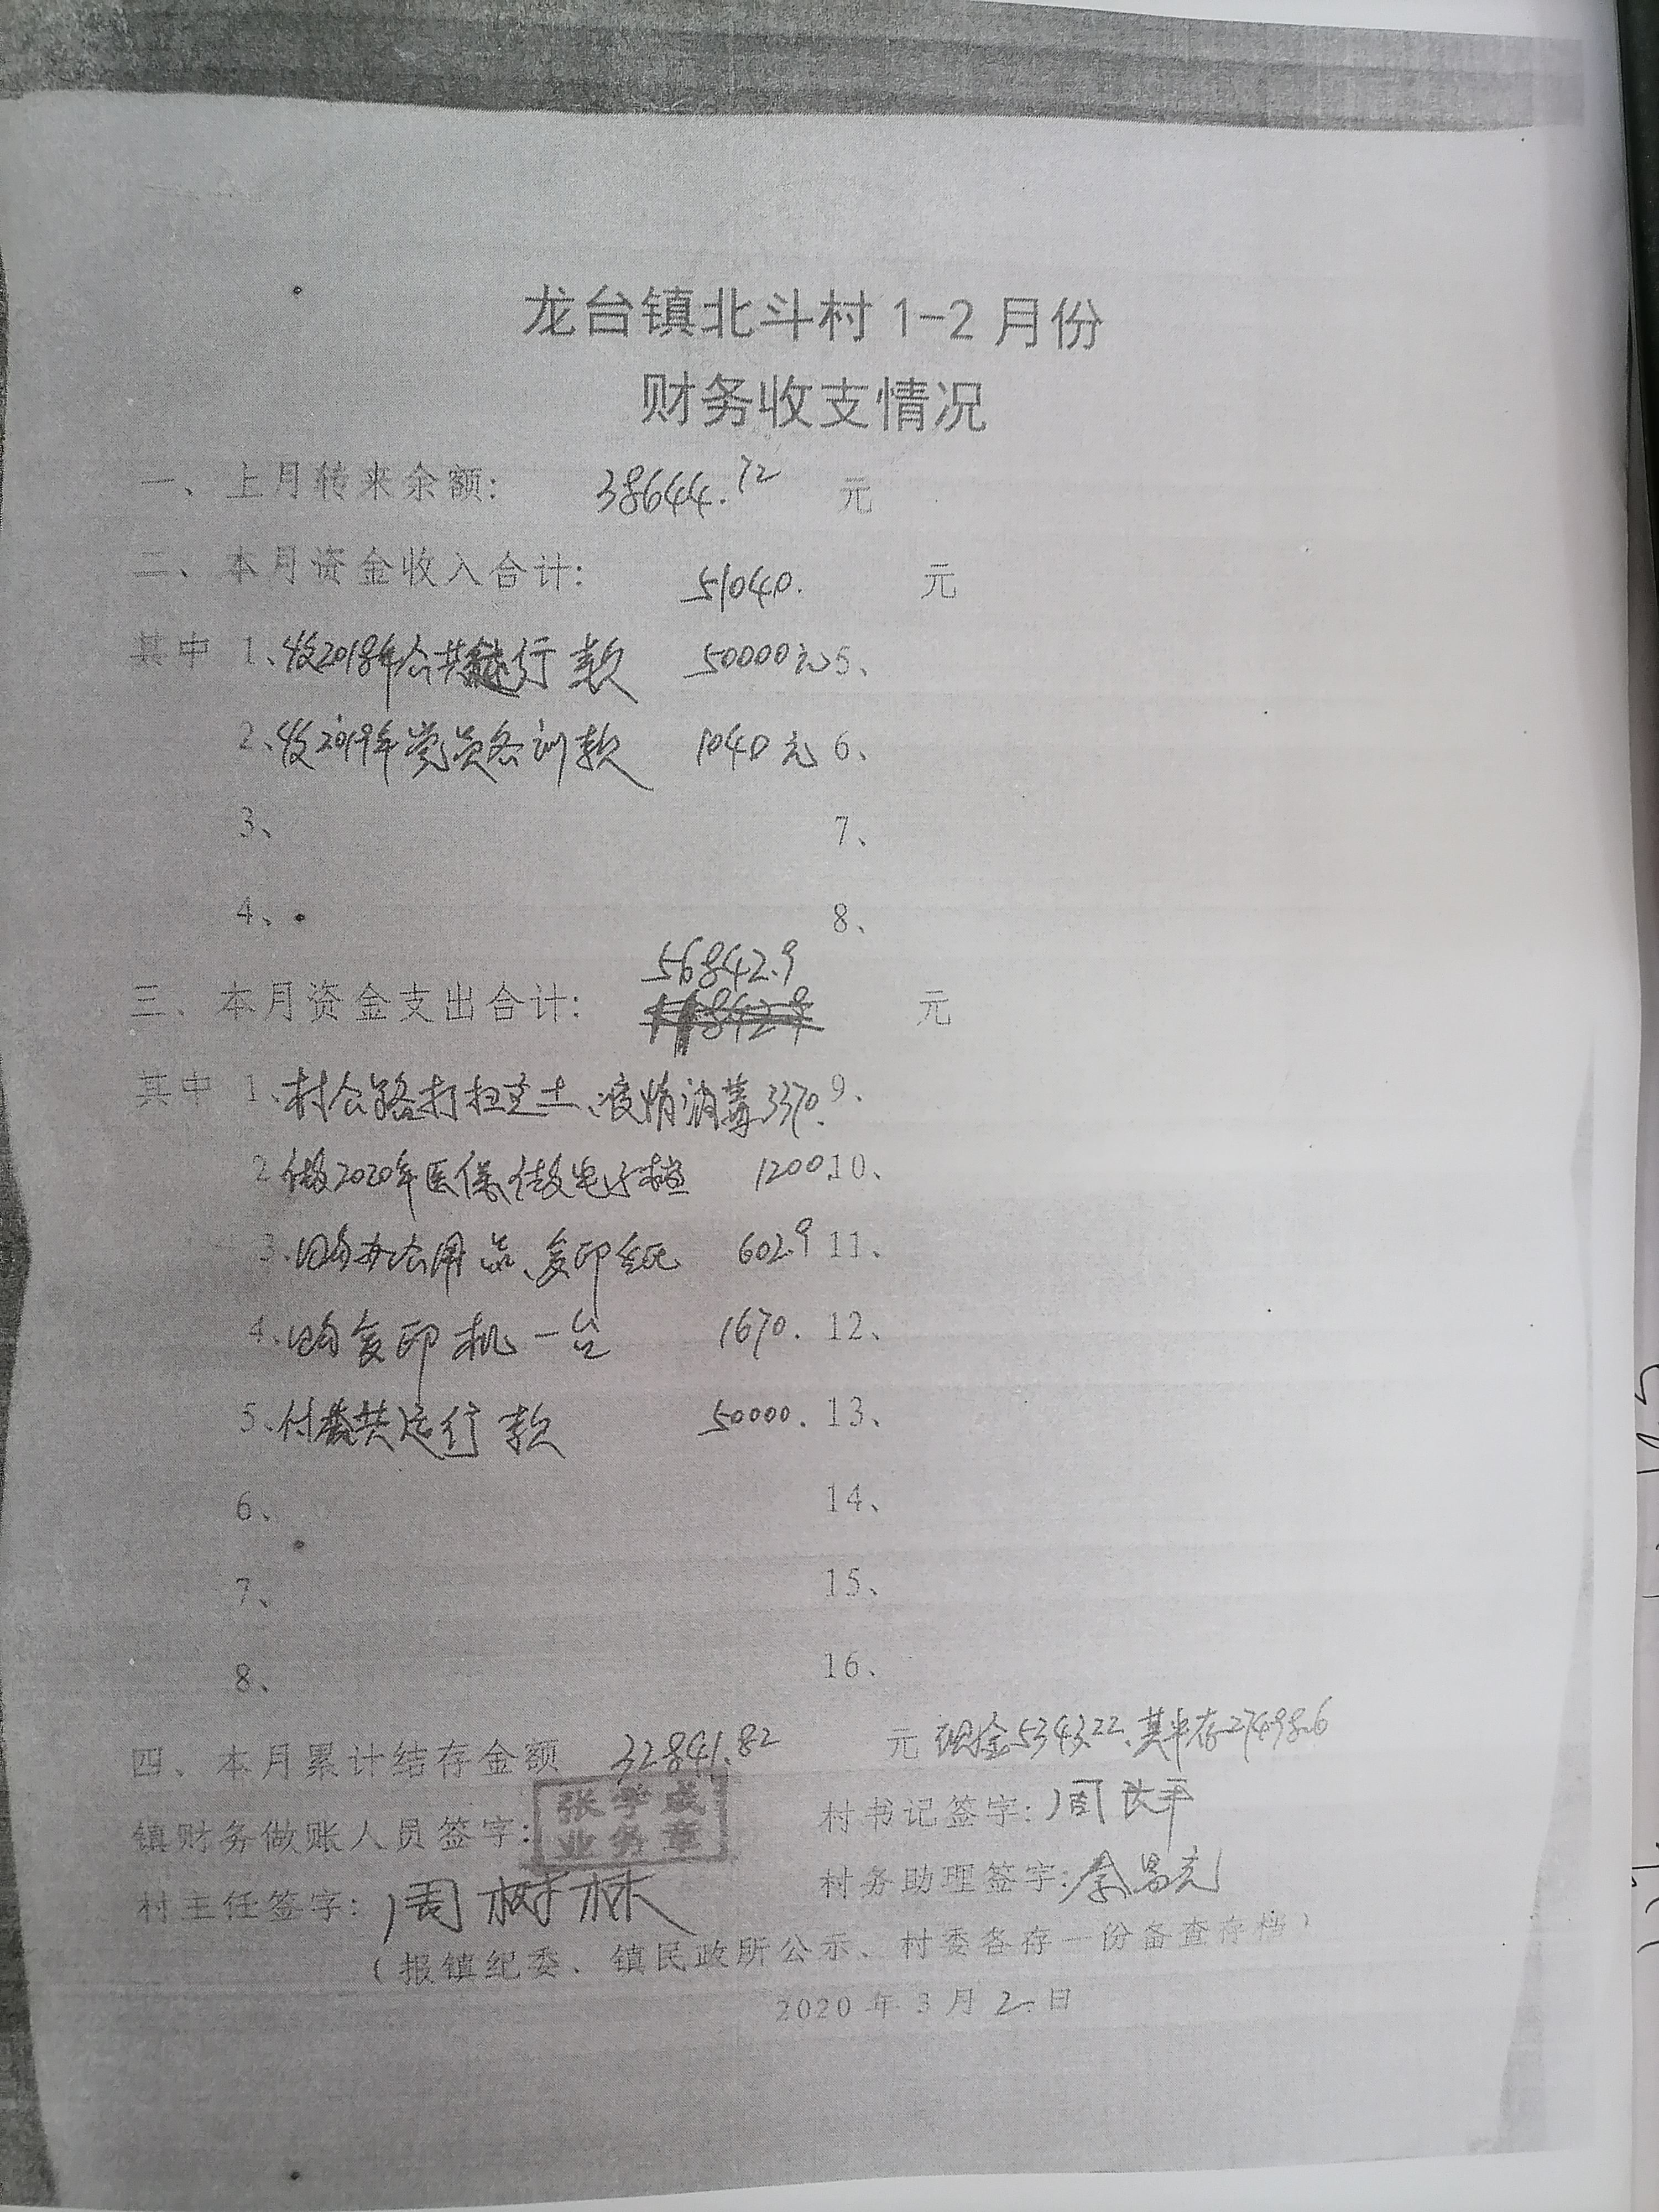 龙台镇北斗村1-2月份
财务收支情况
一、上月转来余额: 38644.72 元
二、本月资金收入合计: 51040. 元
其中 1、收2018年公共运行款 50000元 5、
2、收2019年党员冬训款 1040元 6、
3、 7、
4、 8、
56842.9
三、本月资金支出合计: 元
其中 1、村公路打扫尘土、疫情消毒3370. 9、
2做2020年医保,做电子档 1200. 10、
3.购办公用品、复印纸 602.9 11、
4.购复印机一台 1670. 12、
5.付公共运行款 50000. 13、
6、 14、
7、 15、
8、 16、
四、本月累计结存金额 32841.82 元 现金5343.22、其中存27498.6
镇财务做账人员签字: 张学成 业务章 村书记签字:周长平
村主任签字: 周树林 村务助理签字:
(报镇纪委、镇民政所公示、村委各存一份备查存档)
2020年3月2日